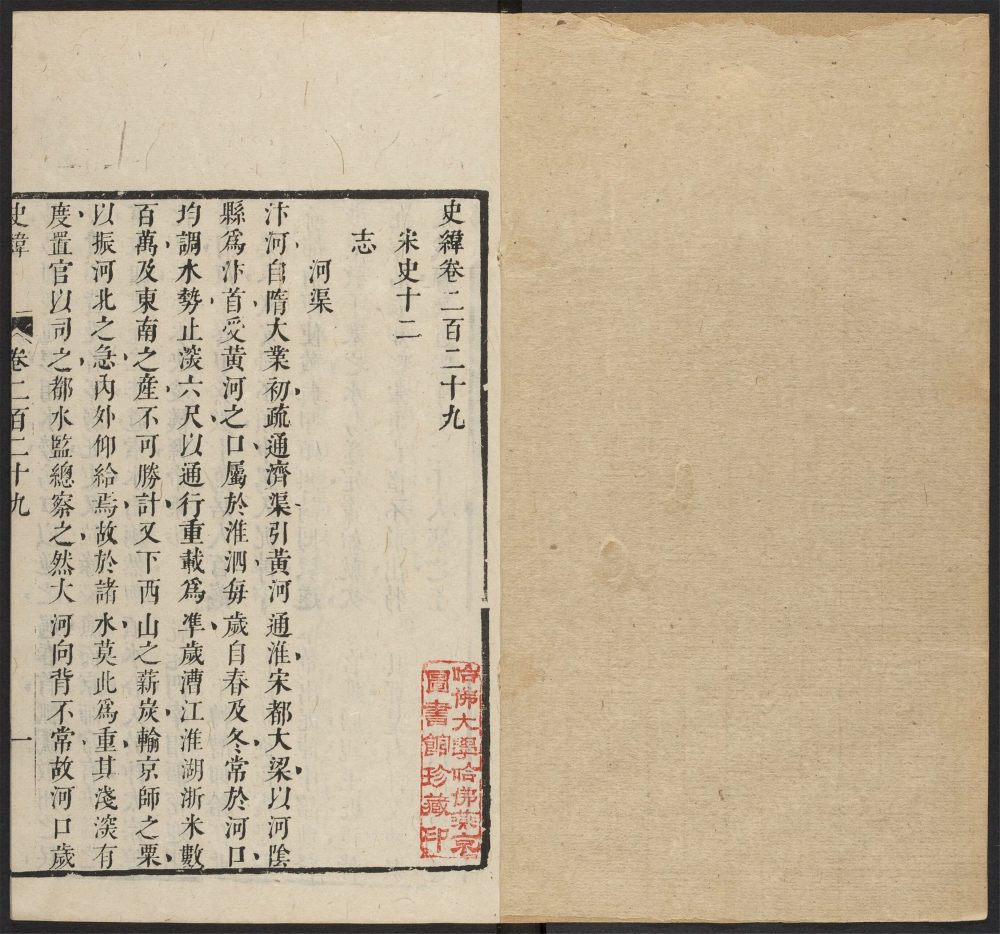 史緯卷二百二十九
宋史十二
志
河渠
汴河自隋大業初疏通濟渠引黃河通淮宋都大梁以河陰
縣爲汴首受黃河之口屬於淮泗每歲自春及冬常於河口
均調水勢止深六尺以通行重載爲準歲漕江淮湖浙米數
百萬及東南之產不可勝計又下西山之薪炭輸京師之粟
以振河北之急內外仰給焉故於諸水莫此爲重其淺深有
度置官以司之都水監總察之然大河向背不常故河口歲
史緯
卷二百二十九
一
哈佛大學哈佛燕京
圖書館珍藏印